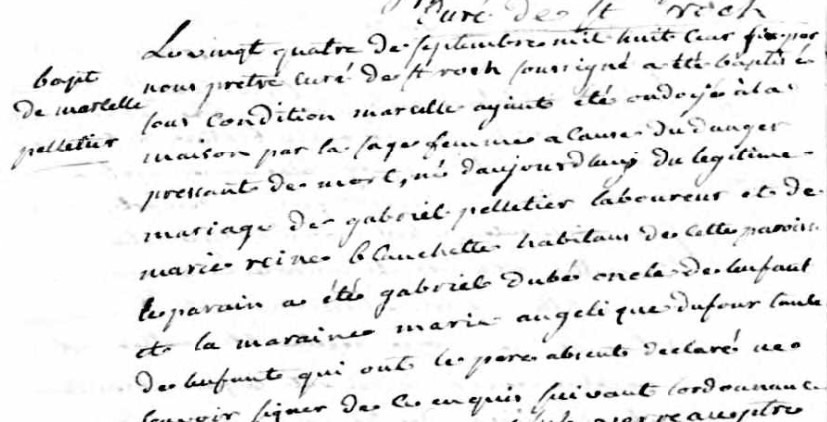 Curé de St roch
bapt
de marcelle
pelletier
Le vingt quatre de septembre mil huit cent six par
nous prêtre curé de St roch soussigné a été baptisé
sous condition marcelle ayant été ondoyé à la
maison par la sage femme a cause du danger
pressant de mort, né daujourdhuy du legitime
mariage de gabriel pelletier laboureur et de
marie reine blanchette habitans de cette paroisse
le parain a été gabriel dubé oncle de lenfant
et la maraine marie angelique dufour tante
de lenfant qui ont le pere absent declaré ne
savoir signer de ce enquis suivant lordonnance